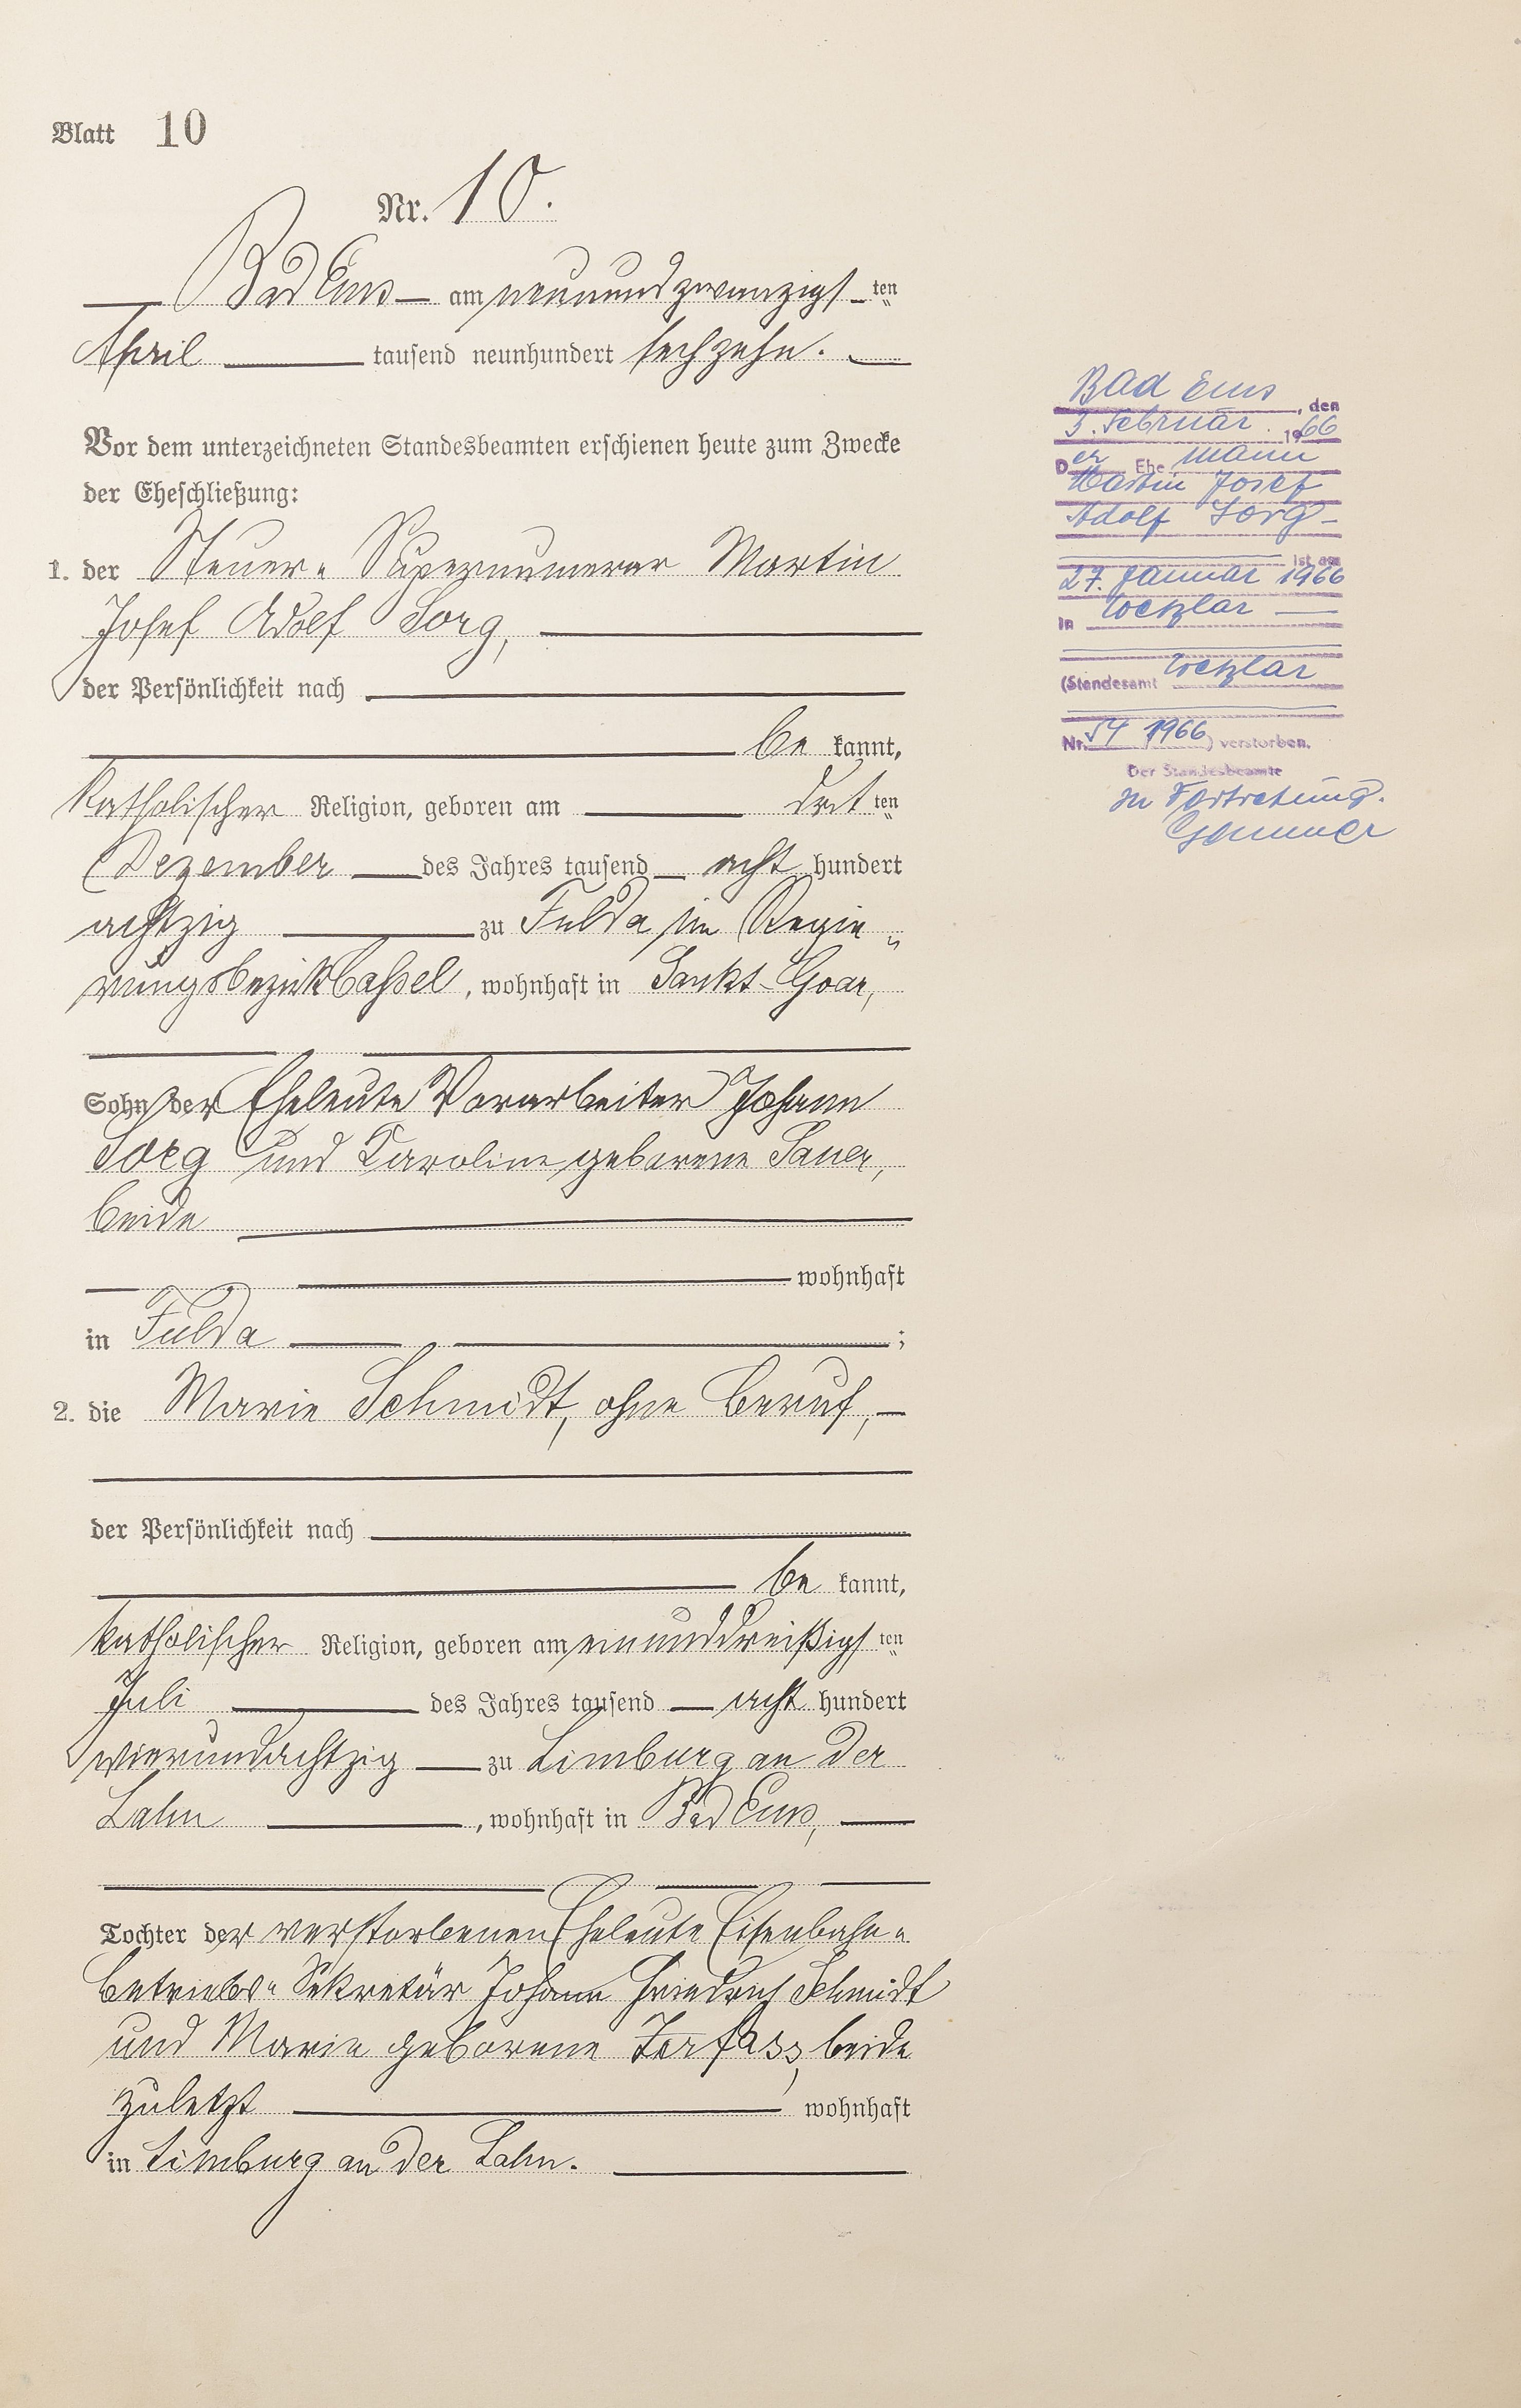 Blatt 10
Nr. 10.
Bad Ems am neunundzwanzigsten
April tausend neunhundert sechzehn.
Vor dem unterzeichneten Standesbeamten erschienen heute zum Zwecke
der Eheschließung:
1. der Steuer-Supernumerar Martin
Josef Adolf Sorg,
der Persönlichkeit nach
be kannt,
katholischer Religion, geboren am dritten
Dezember des Jahres tausend acht hundert
achtzig zu Fulda im Regie-
rungsbezirk Cassel, wohnhaft in Sankt-Goar,
Sohn der Eheleute Vorarbeiter Johann
Sorg und Karoline geborene Sauer,
beide
wohnhaft
in Fulda ;
2. die Marie Schmidt, ohne Beruf,
der Persönlichkeit nach
be kannt,
katholischer Religion, geboren am einunddreißigsten
Juli des Jahres tausend acht hundert
vierundachtzig zu Limburg an der
Lahn, wohnhaft in Bad Ems,
Tochter der verstorbenen Eheleute Eisenbahn-
betriebs-Sekretär Johann Friedrich Schmidt
und Marie geborene Zerfass, beide
zuletzt wohnhaft
in Limburg an der Lahn.
Bad Ems, den
3. Februar 1966
Der Ehemann
Martin Josef
Adolf Sorg
ist am
27. Januar 1966
in Wetzlar
(Standesamt Wetzlar
Nr. 54 1966) verstorben.
Der Standesbeamte
In Vertretung.